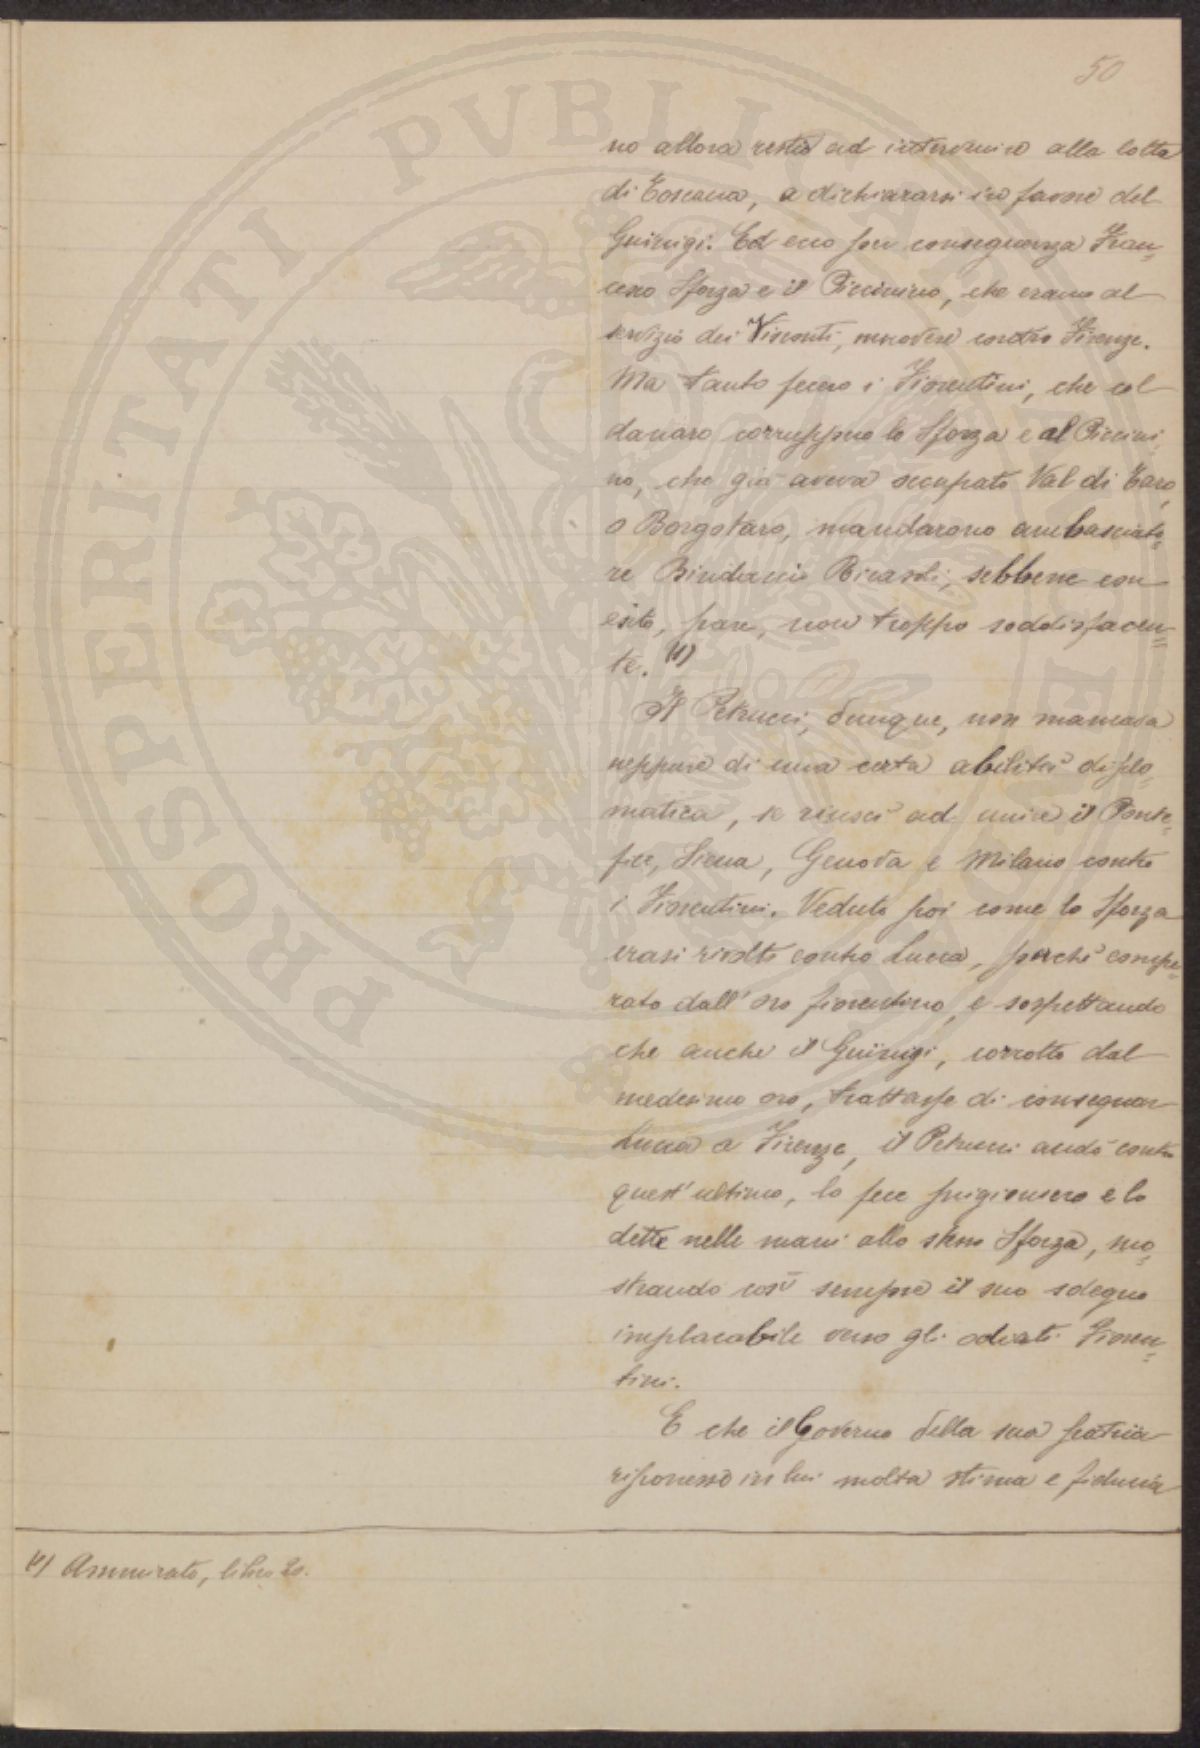 50
no allora restio ad intervenire alla lotta
di Toscana, a dichiararsi in favore del
Guinigi. Ed ecco per conseguenza Fran-
cesco Sforza e il Piccinino, che erano al
servizio dei Visconti, muovere contro Firenze.
Ma tanto fecero i Fiorentini, che col
danaro corruppero lo Sforza e al Piccini-
no, che già aveva occupato Val di Taro,
o Borgotaro, mandarono ambasciato-
re Bindaccio Ricasoli, sebbene con
esito, pare, non troppo soddisfacen-
te. (1)
Il Petrucci, dunque, non mancava
neppure di una certa abilità diplo-
matica, se riuscì ad unire il Ponte-
fice, Siena, Genova e Milano contro
i Fiorentini. Veduto poi come lo Sforza
erasi rivolto contro Lucca, perchè compe-
rato dall'oro fiorentino, e sospettando
che anche il Guinigi, corrotto dal
medesimo oro, trattasse di consegnar
Lucca a Firenze, il Petrucci andò contro
quest'ultimo, lo fece prigioniero e lo
dette nelle mani allo stesso Sforza, mo-
strando così sempre il suo sdegno
implacabile verso gli odiati Fioren-
tini.
E che il Governo della sua patria
riponesse in lui molta stima e fiducia
(1) Ammirato, libro 20.
PROSPERITATI PVBLICAE